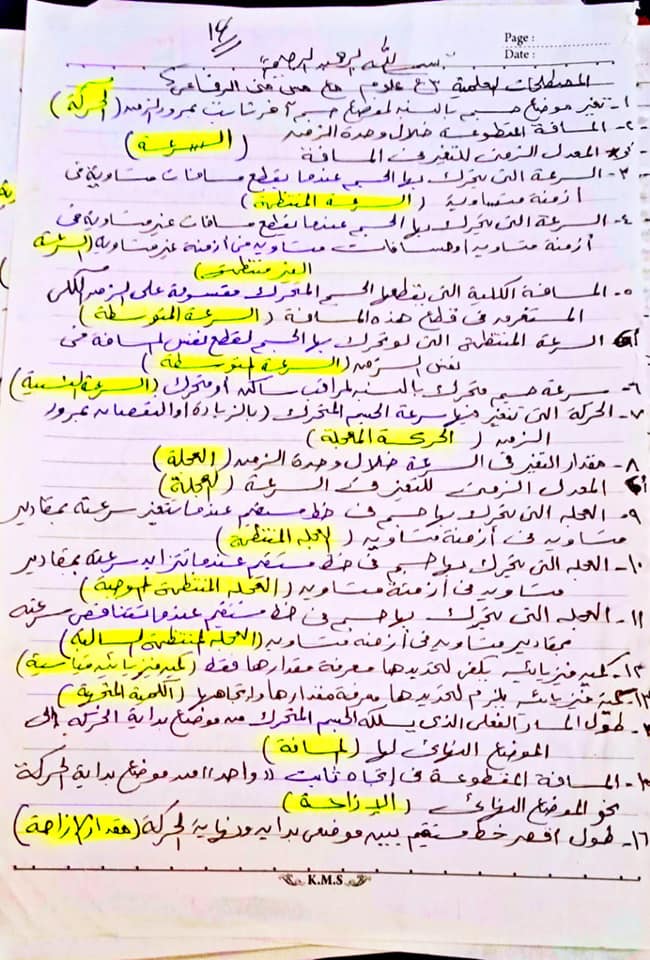 ١٤
Page :
Date :
بسم الله الرحمن الرحيم
المصطلحات العلمية ٣ع علوم مع منى فتحى الرفاعى
١- تغير موضع جسم بالنسبة لموضع جسم آخر ثابت بمرور الزمن (الحركة)
٢- المسافة المقطوعة خلال وحدة الزمن
أو المعدل الزمنى للتغير فى المسافة (السرعة)
٣- السرعة التى يتحرك بها الجسم عندما يقطع مسافات متساوية فى
أزمنة متساوية (السرعة المنتظمة)
٤- السرعة التى يتحرك بها الجسم عندما يقطع مسافات غير متساوية فى
أزمنة متساوية أو مسافات متساوية فى أزمنة غير متساوية (السرعة
الغير منتظمة)
٥- المسافة الكلية التى يقطعها الجسم المتحرك مقسومة على الزمن الكلى
المستغرق فى قطع هذه المسافة (السرعة المتوسطة)
أو السرعة المنتظمة التى لو تحرك بها الجسم لقطع نفس المسافة فى
نفس الزمن (السرعة المتوسطة)
٦- سرعة جسم متحرك بالنسبة لمراقب ساكن أو متحرك (السرعة النسبية)
٧- الحركة التى تتغير فيها سرعة الجسم المتحرك (بالزيادة أو النقصان بمرور
الزمن (الحركة المعجلة)
٨- مقدار التغير فى السرعة خلال وحدة الزمن (العجلة)
أو المعدل الزمنى للتغير فى السرعة (العجلة)
٩- العجله التى يتحرك بها جسم فى خط مستقيم عندما تتغير سرعته بمقادير
متساوية فى أزمنة متساوية (العجلة المنتظمة)
١٠- العجله التى يتحرك بها جسم فى خط مستقيم عندما تتزايد سرعته بمقادير
متساوية فى أزمنة متساوية (العجلة المنتظمة الموجبة)
١١- العجله التى يتحرك بها جسم فى خط مستقيم عندما تتناقص سرعته
بمقادير متساوية فى أزمنة متساوية (العجلة المنتظمة السالبة)
١٢- كمية فيزيائية يكفى لتحديدها معرفة مقدارها فقط (كمية فيزيائية قياسية)
١٣- كمية فيزيائية يلزم لتحديدها معرفة مقدارها واتجاهها (الكمية المتجهة)
طول المسار الفعلى الذى يسلكه الجسم المتحرك من موضع بداية الحركة إلى
الموضع النهائى لها (المسافة)
المسافة المقطوعة فى إتجاه ثابت ((واحد)) من موضع بداية الحركة
نحو الموضع النهائى (الإزاحة)
١٦- طول أقصر خط مستقيم بين موضعى بداية ونهاية الحركة (مقدار الإزاحة)
K.M.S